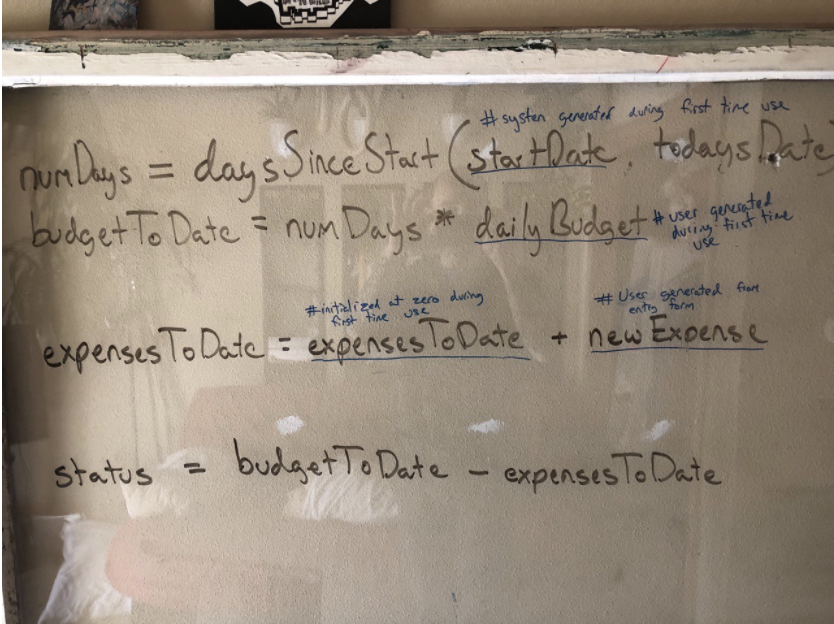 # system generated during first time use
numDays = daysSinceStart(startDate, todaysDate)
budgetToDate = numDays * dailyBudget # user generated
during first time
use
#initialized at zero during
first time use
# User generated from
entry form
expensesToDate = expensesToDate + newExpense
status = budgetToDate - expensesToDate